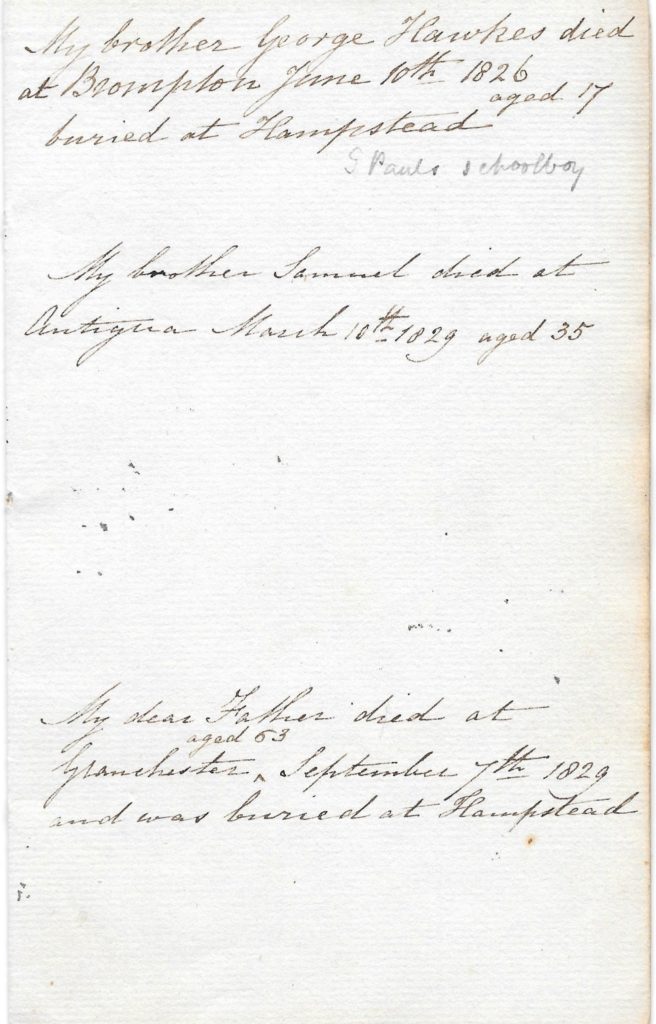 My brother George Hawkes died
at Brompton June 10th 1826
aged 17
buried at Hampstead
S Pauls schoolboy
My brother Samuel died at
Antigua March 10th 1829 aged 35
My dear Father died at
aged 63
Granchester ^ September 7th 1829
and was buried at Hampstead